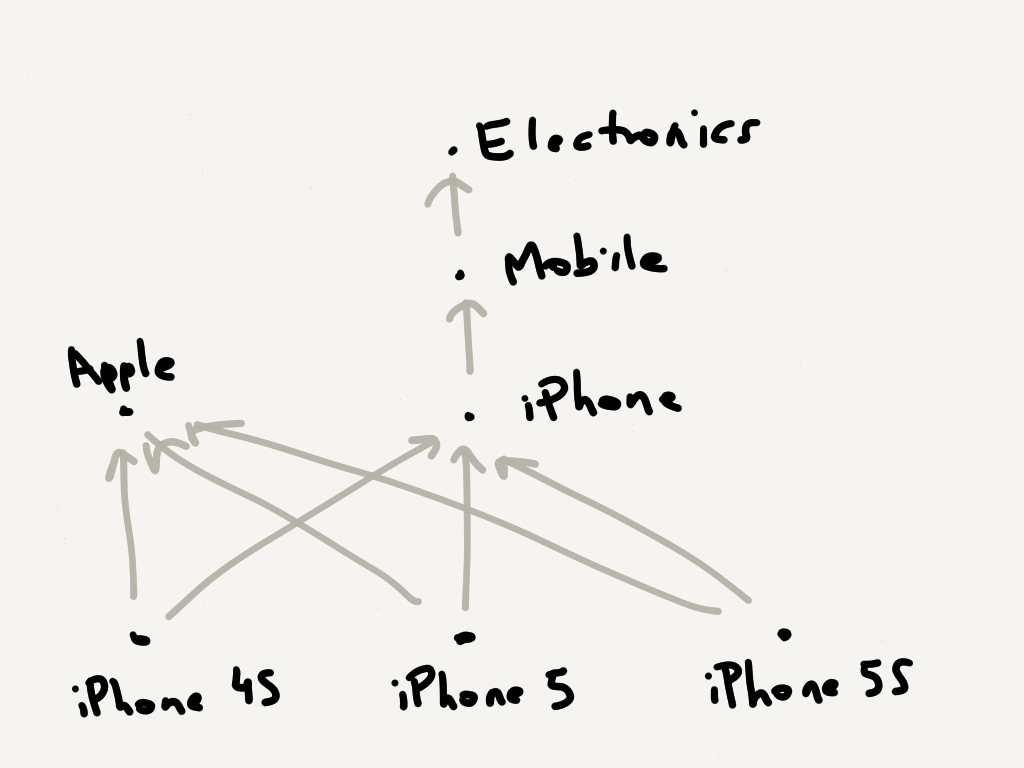 Electronics
Mobile
Apple
iPhone
iPhone 4S
iPhone 5
iPhone 5S